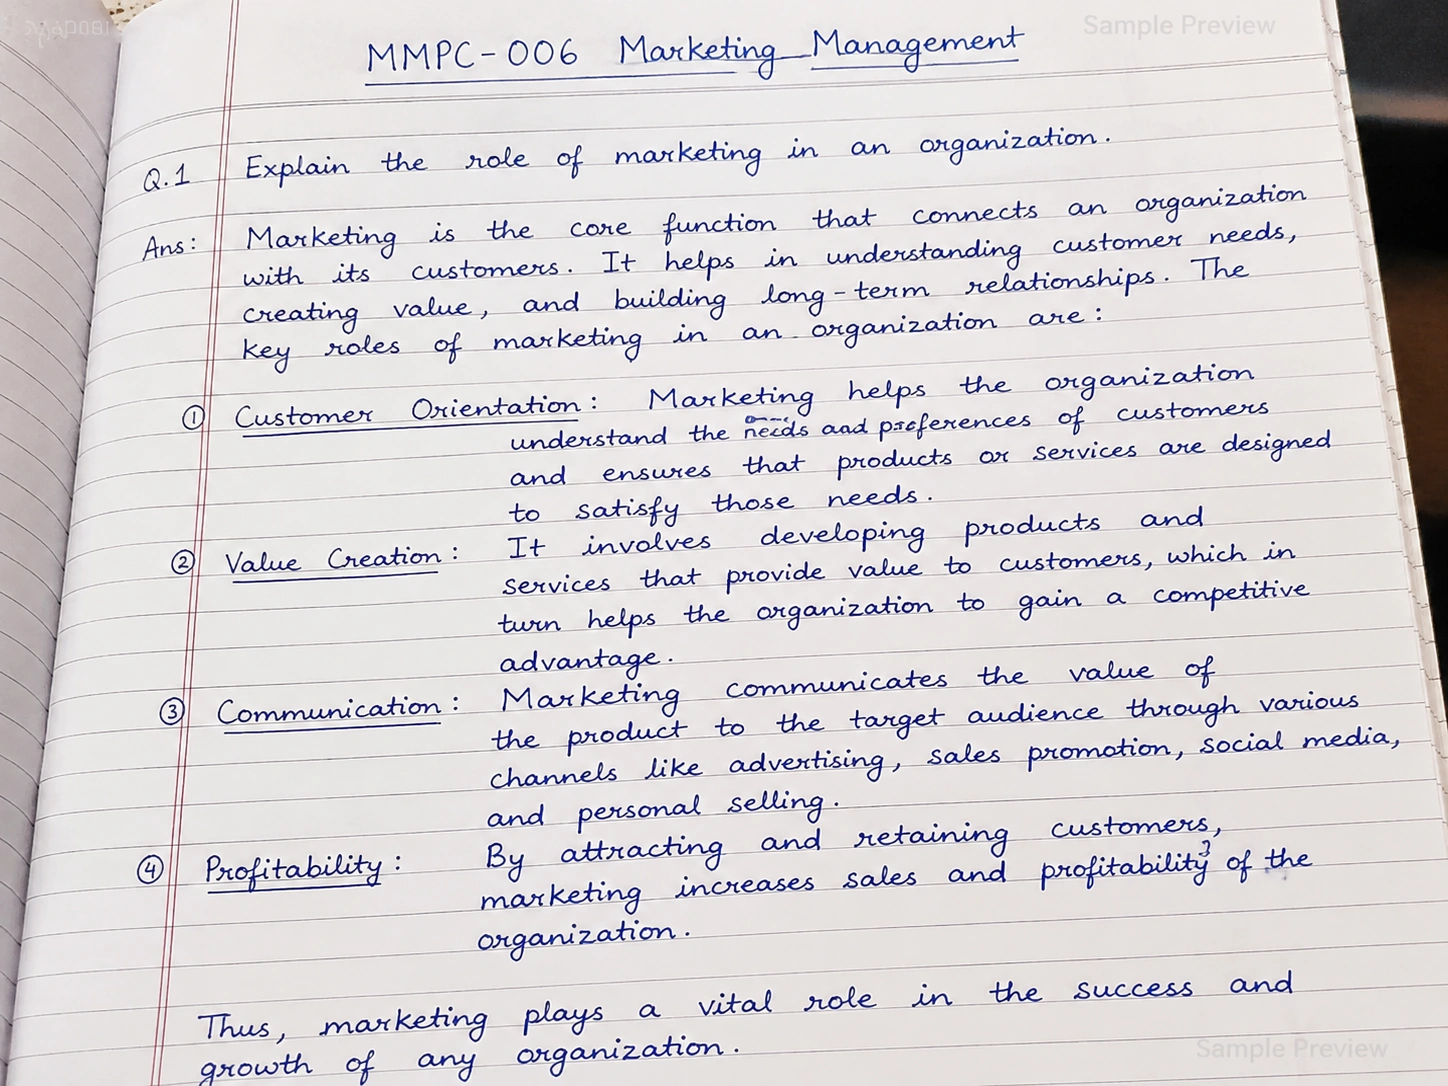 Sample Preview
MMPC-006 Marketing Management
Q.1 Explain the role of marketing in an organization.
Ans: Marketing is the core function that connects an organization
with its customers. It helps in understanding customer needs,
creating value, and building long-term relationships. The
key roles of marketing in an organization are:
① Customer Orientation: Marketing helps the organization
understand the needs and preferences of customers
and ensures that products or services are designed
to satisfy those needs.
② Value Creation: It involves developing products and
services that provide value to customers, which in
turn helps the organization to gain a competitive
advantage.
③ Communication: Marketing communicates the value of
the product to the target audience through various
channels like advertising, sales promotion, social media,
and personal selling.
④ Profitability: By attracting and retaining customers,
marketing increases sales and profitability of the
organization.
Thus, marketing plays a vital role in the success and
growth of any organization.
Sample Preview